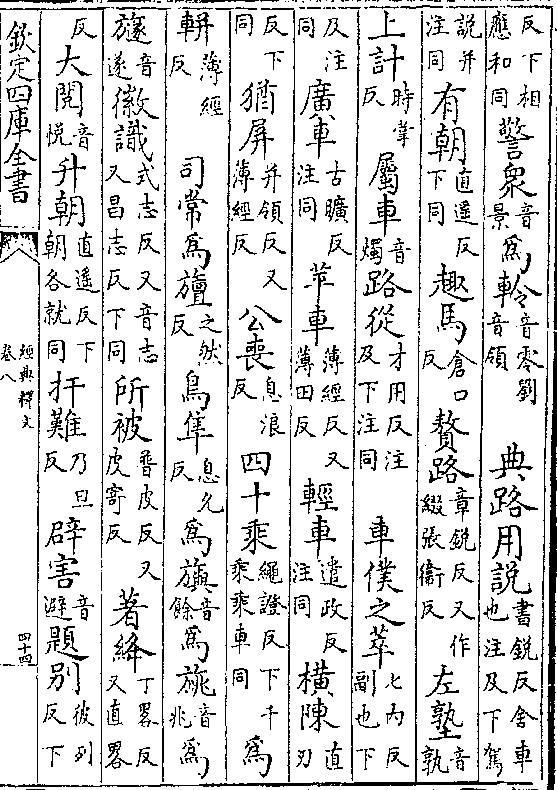 反下相應和同警衆音景爲軨音零劉音領　典路用說書銳反舍車也注及下駕
說并注同有朝直遥反下同趣馬倉口反贅路章銳反又作綴張衞反左塾音孰
上計時掌反屬車音燭路從才用反注及下注同　車僕之萃七内反副也下
及注同廣車古曠反注同苹車薄經反又薄田反輕車遣政反注同橫陳直刃
反下同猶屏并領反又薄經反公喪息浪反四十乘繩證反下千乘乘車同爲
軿薄經反　司常爲旜之然反鳥隼息允反爲旟音餘爲旐音兆爲
旞音遂徽識式志反又音志又昌志反下同所被普皮反又皮寄反著絳丁畧反又直畧
反大閱音悅升朝直遥反下朝各就同扞難乃旦反辟害音避題别彼列反下
欽定四庫全書
經典釋文
卷八
四十四